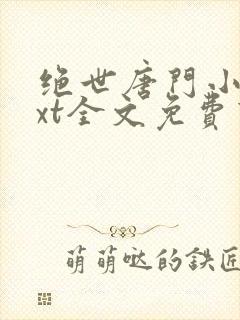 绝世唐門小
xt全文免費
萌萌哒的鉄匠